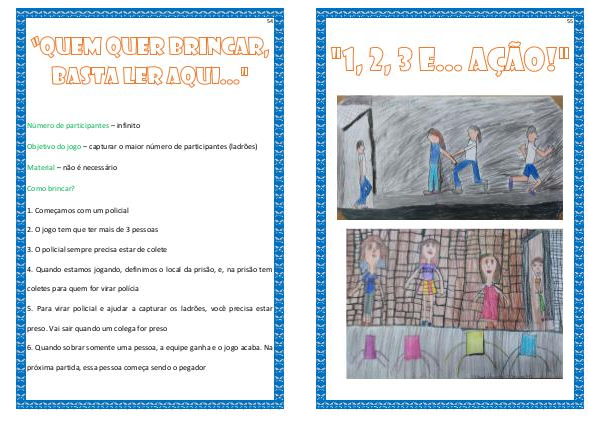 54
"QUEM QUER BRINCAR,
BASTA LER AQUI..."
Número de participantes – infinito
Objetivo do jogo – capturar o maior número de participantes (ladrões)
Material – não é necessário
Como brincar?
1. Começamos com um policial
2. O jogo tem que ter mais de 3 pessoas
3. O policial sempre precisa estar de colete
4. Quando estamos jogando, definimos o local da prisão, e, na prisão tem
coletes para quem for virar polícia
5. Para virar policial e ajudar a capturar os ladrões, você precisa estar
preso. Vai sair quando um colega for preso
6. Quando sobrar somente uma pessoa, a equipe ganha e o jogo acaba. Na
próxima partida, essa pessoa começa sendo o pegador
55
"1, 2, 3 E... AÇÃO!"